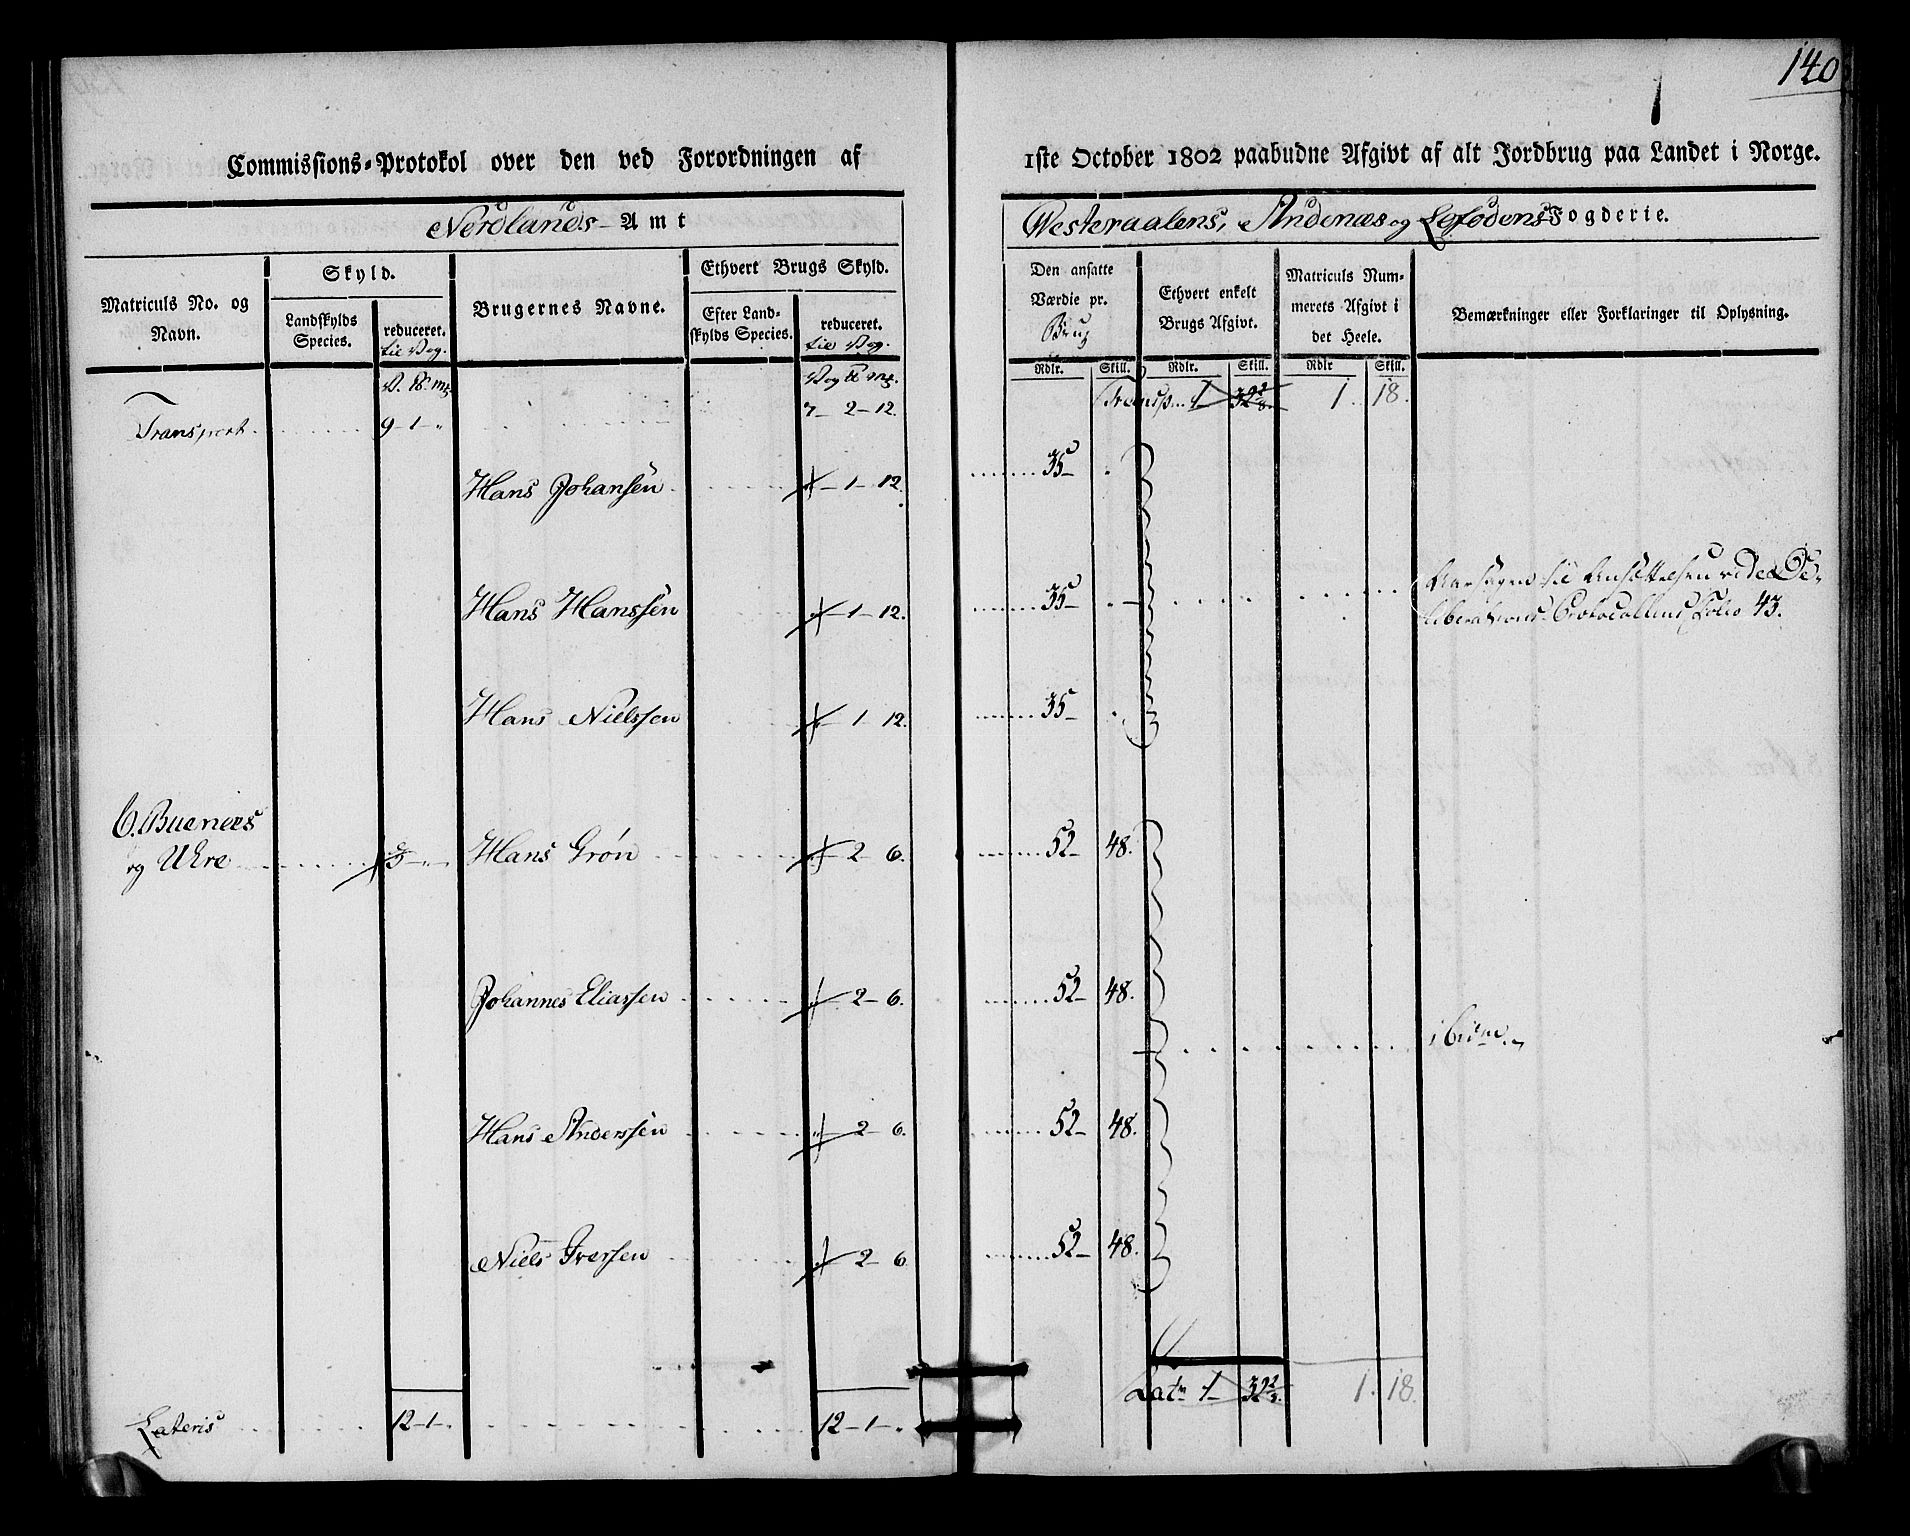 140
Commissions-Protokol over den ved Forordningen af 1ste October 1802 paabudne Afgivt af alt Jordbrug paa Landet i Norge.
Nordlands Amt
Westeraalens, Andenæs og Lofodens Fogderie.
Matriculs No. og Navn.
Skyld.
Landskylds Species.
reduceret.
til Vog.
Brugernes Navne.
Ethvert Brugs Skyld.
Efter Landskylds Species.
reduceret.
til Vog.
Den ansatte Værdie pr.
Brug
Ethvert enkelt Brugs Afgivt.
Matriculs Nummerets Afgivt i det Heele.
Bemærkninger eller Forklaringer til Oplysning.
Rdlr. Skill. Rdlr. Skill. Rdlr Skill.
Transport 9-1-" 7-2-12. Transp. 1 1. 18.
Hans Johansen 1-12. 35-
Hans Hanssen 1-12. 35-
Aarsagen til Ansættelsen vide De-
liberations-Protocollens Folio 43.
Hans Nielssen 1 12. 35-
6. Buenæs
og Uhre 3 Hans Grøn 2-6. 52-48.
Johannes Eliassen 2-6. 52-48.
ibidm
Hans Anderssen 2-6. 52-48.
Niels Iversen 2-6 52-48.
Lateris 12-1-" 12-1-" Lat 1 1. 18.